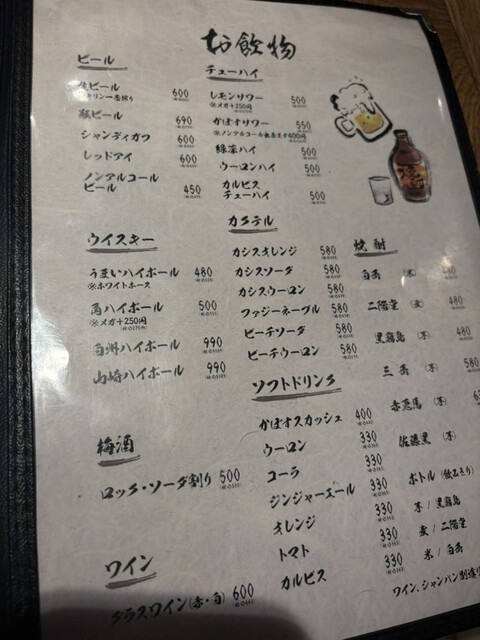 お飲物
ビール
生ビール 600
キリン一番搾り
瓶ビール 690
シャンディガフ 600
レッドアイ 600
ノンアルコール
ビール 450
チューハイ
レモンサワー 500
※メガ+250円
かぼすサワー 550
緑茶ハイ 500
ウーロンハイ 500
カルピス
チューハイ 500
ウイスキー
うまいハイボール 480
※ホワイトホース
角ハイボール 500
※メガ+250円
白州ハイボール 990
山崎ハイボール 990
カクテル
カシスオレンジ 580
カシスソーダ 580
カシスウーロン 580
ファジーネーブル 580
ピーチソーダ 580
ピーチウーロン 580
焼酎
白岳 (米) 480
二階堂 (麦) 480
黒霧島 (芋) 480
三岳 (芋) 580
赤兎馬 (芋)
佐藤黒 (芋)
ボトル(飲みきり)
芋/黒霧島
麦/二階堂
米/白岳
ワイン、シャンパン別途
梅酒
ロック・ソーダ割り 500
ワイン
グラスワイン(赤・白) 600
ソフトドリンク
かぼすスカッシュ 400
ウーロン 330
コーラ 330
ジンジャーエール 330
オレンジ 330
トマト 330
カルピス 330